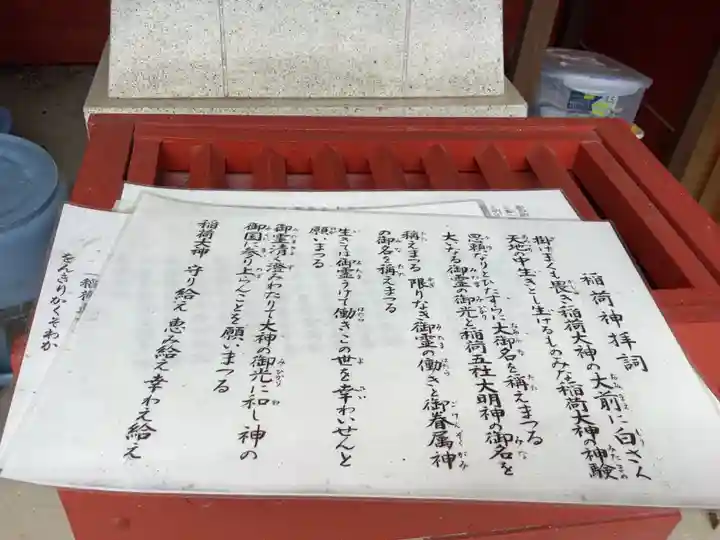 稲荷神拝詞
掛けまくも畏き稲荷大神の大前に白さく
天地の中生きとし生けるものみな稲荷大神の神験
恩頼なりとひたすらに大御名を称えまつる
大いなる御霊の御光と稲荷五社大明神の御名を
称えまつる 限りなき御霊の働きと御眷属神
の御名を称えまつる
生きては御霊うけて働きこの世を幸わいせんと
願いまつる
御霊清く澄みわたりて大神の御光に和し神の
御国に参り上らんことを願いまつる
稲荷大神 守り給え 恵み給え 幸わえ給え
一稲荷
をんきりかくそわか